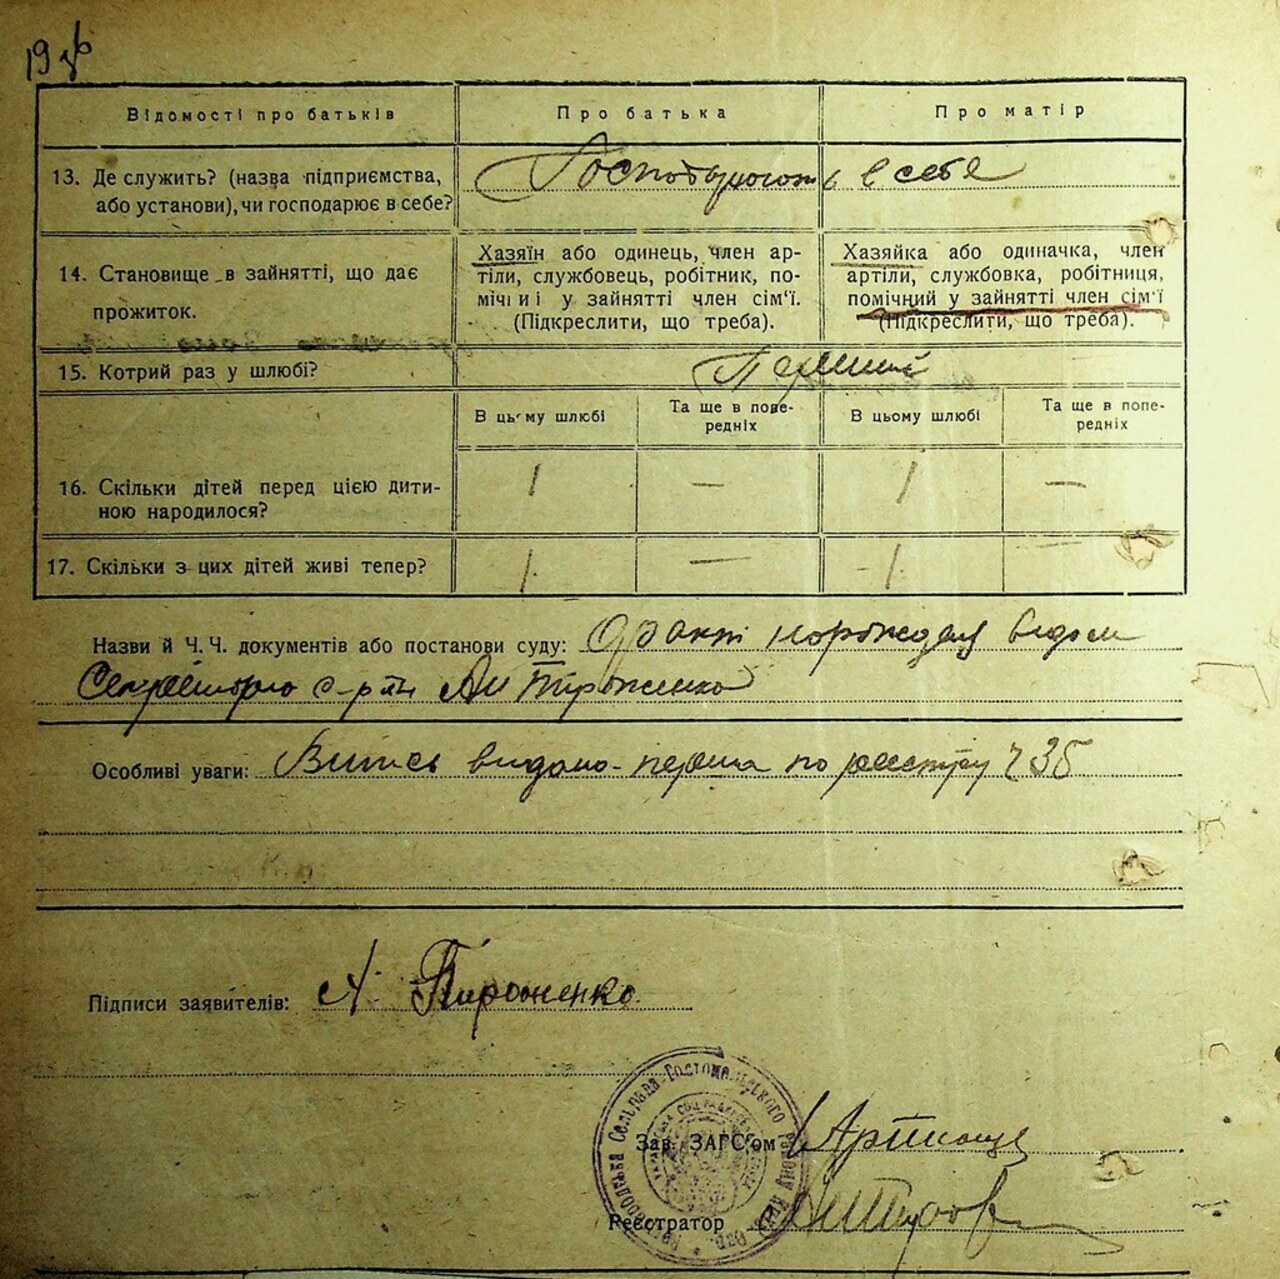 Відомості про батьків
Про батька
Про матір
13. Де служить? (назва підприємства,
або установи), чи господарює в себе?
Господарюють в себе
14. Становище в зайнятті, що дає
прожиток.
Хазяїн або одинець, член ар-
тіли, службовець, робітник, по-
мічний у зайнятті член сім'ї.
(Підкреслити, що треба).
Хазяйка або одиначка, член
артіли, службовка, робітниця,
помічний у зайнятті член сім'ї
(Підкреслити, що треба).
15. Котрий раз у шлюбі?
Перший
В цьому шлюбі
Та ще в попе-
редніх
В цьому шлюбі
Та ще в попе-
редніх
16. Скільки дітей перед цією дити-
ною народилося?
1 — 1 —
17. Скільки з цих дітей живі тепер?
1. — 1. —
Назви й Ч. Ч. документів або постанови суду:
видан
Секретарю с-ради
Особливі уваги: Витяг видано перша по реєстру Ч 36
Підписи заявителів: А. Пироженко
Сельрада Гостомельського району
Зав. ЗАГС'ом
Реєстратор